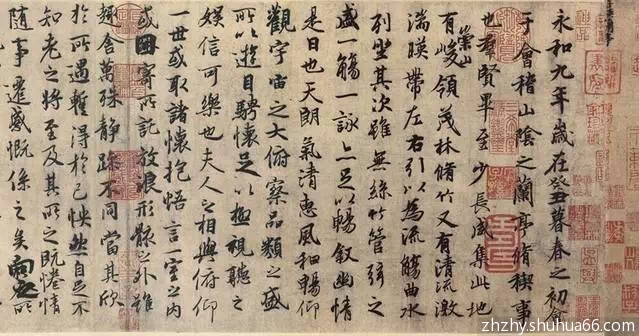 永和九年歲在癸丑暮春之初會
于會稽山陰之蘭亭脩稧事
也羣賢畢至少長咸集此地
有崇山峻領茂林脩竹又有清流激
湍暎帶左右引以為流觴曲水
列坐其次雖無絲竹管弦之
盛一觴一詠亦足以暢叙幽情
是日也天朗氣清惠風和暢仰
觀宇宙之大俯察品類之盛
所以遊目騁懷足以極視聽之
娛信可樂也夫人之相與俯仰
一世或取諸懷抱悟言一室之內
或因寄所託放浪形骸之外雖
趣舍萬殊靜躁不同當其欣
於所遇蹔得於己怏然自足不
知老之將至及其所之既惓情
隨事遷感慨係之矣向之所
zhzhy.shuhua66.com